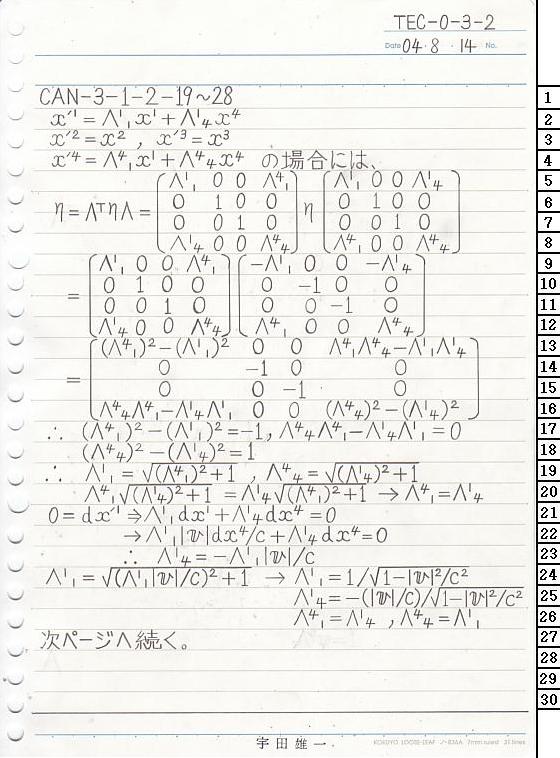 TEC-0-3-2
Date 04・8・14 No.
CAN-3-1-2-19～28
x'¹=Λ¹₁x¹+Λ¹₄x⁴
x'²=x², x'³=x³
x'⁴=Λ⁴₁x¹+Λ⁴₄x⁴ の場合には、
η=ΛᵀηΛ= [Λ¹₁ 0 0 Λ⁴₁] η [Λ¹₁ 0 0 Λ¹₄]
[0 1 0 0] [0 1 0 0]
[0 0 1 0] [0 0 1 0]
[Λ¹₄ 0 0 Λ⁴₄] [Λ⁴₁ 0 0 Λ⁴₄]
= [Λ¹₁ 0 0 Λ⁴₁] [-Λ¹₁ 0 0 -Λ¹₄]
[0 1 0 0] [0 -1 0 0]
[0 0 1 0] [0 0 -1 0]
[Λ¹₄ 0 0 Λ⁴₄] [Λ⁴₁ 0 0 Λ⁴₄]
= [(Λ⁴₁)²-(Λ¹₁)² 0 0 Λ⁴₁Λ⁴₄-Λ¹₁Λ¹₄]
[0 -1 0 0]
[0 0 -1 0]
[Λ⁴₄Λ⁴₁-Λ¹₄Λ¹₁ 0 0 (Λ⁴₄)²-(Λ¹₄)²]
∴ (Λ⁴₁)²-(Λ¹₁)²=-1, Λ⁴₄Λ⁴₁-Λ¹₄Λ¹₁=0
(Λ⁴₄)²-(Λ¹₄)²=1
∴ Λ¹₁=√((Λ⁴₁)²+1) , Λ⁴₄=√((Λ¹₄)²+1)
Λ⁴₁√((Λ¹₄)²+1) =Λ¹₄√((Λ⁴₁)²+1) →Λ⁴₁=Λ¹₄
0=dx'¹⇒Λ¹₁dx¹+Λ¹₄dx⁴=0
→Λ¹₁|𝕧|dx⁴/c+Λ¹₄dx⁴=0
∴ Λ¹₄=-Λ¹₁|𝕧|/c
Λ¹₁=√((Λ¹₁|𝕧|/c)²+1) → Λ¹₁=1/√(1-|𝕧|²/c²)
Λ¹₄=-(|𝕧|/c)/√(1-|𝕧|²/c²)
Λ⁴₁=Λ¹₄ , Λ⁴₄=Λ¹₁
次ページへ続く。
宇田雄一
KOKUYO LOOSE-LEAF ノ-836A 7mm ruled 31 lines
1
2
3
4
5
6
7
8
9
10
11
12
13
14
15
16
17
18
19
20
21
22
23
24
25
26
27
28
29
30